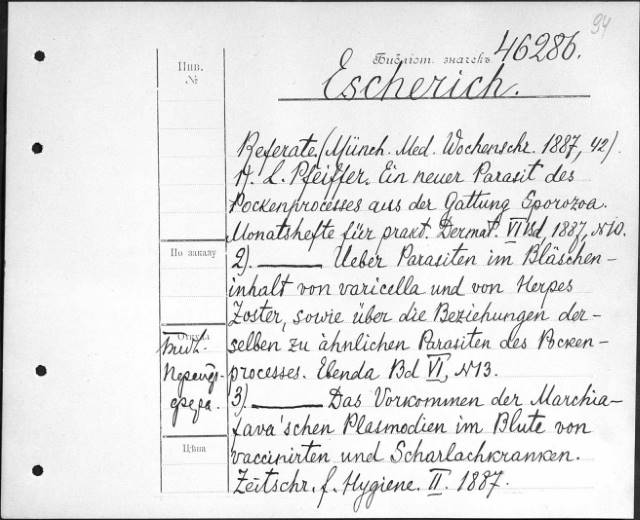 94
Библіот. значекъ 46286.
Escherich.
Инв.
№
Referate. (Münch. Med. Wochenschr. 1887, 42).
1). L. Pfeiffer. Ein neuer Parasit des
Pockenprocesses aus der Gattung Sporozoa.
Monatshefte für prakt. Dermat. VI Bd, 1887, N10.
По заказу
2). ——— Ueber Parasiten im Bläschen-
inhalt von varicella und von Herpes
Zoster, sowie über die Beziehungen der-
selben zu ähnlichen Parasiten des Pocken-
processes. Ebenda Bd VI, N13.
Откуда
Библ.
фера.
3). ——— Das Vorkommen der Marchia-
fava'schen Plasmodien im Blute von
vaccinirten und Scharlachkranken.
Zeitschr. f. Hygiene. II. 1887.
Цѣна